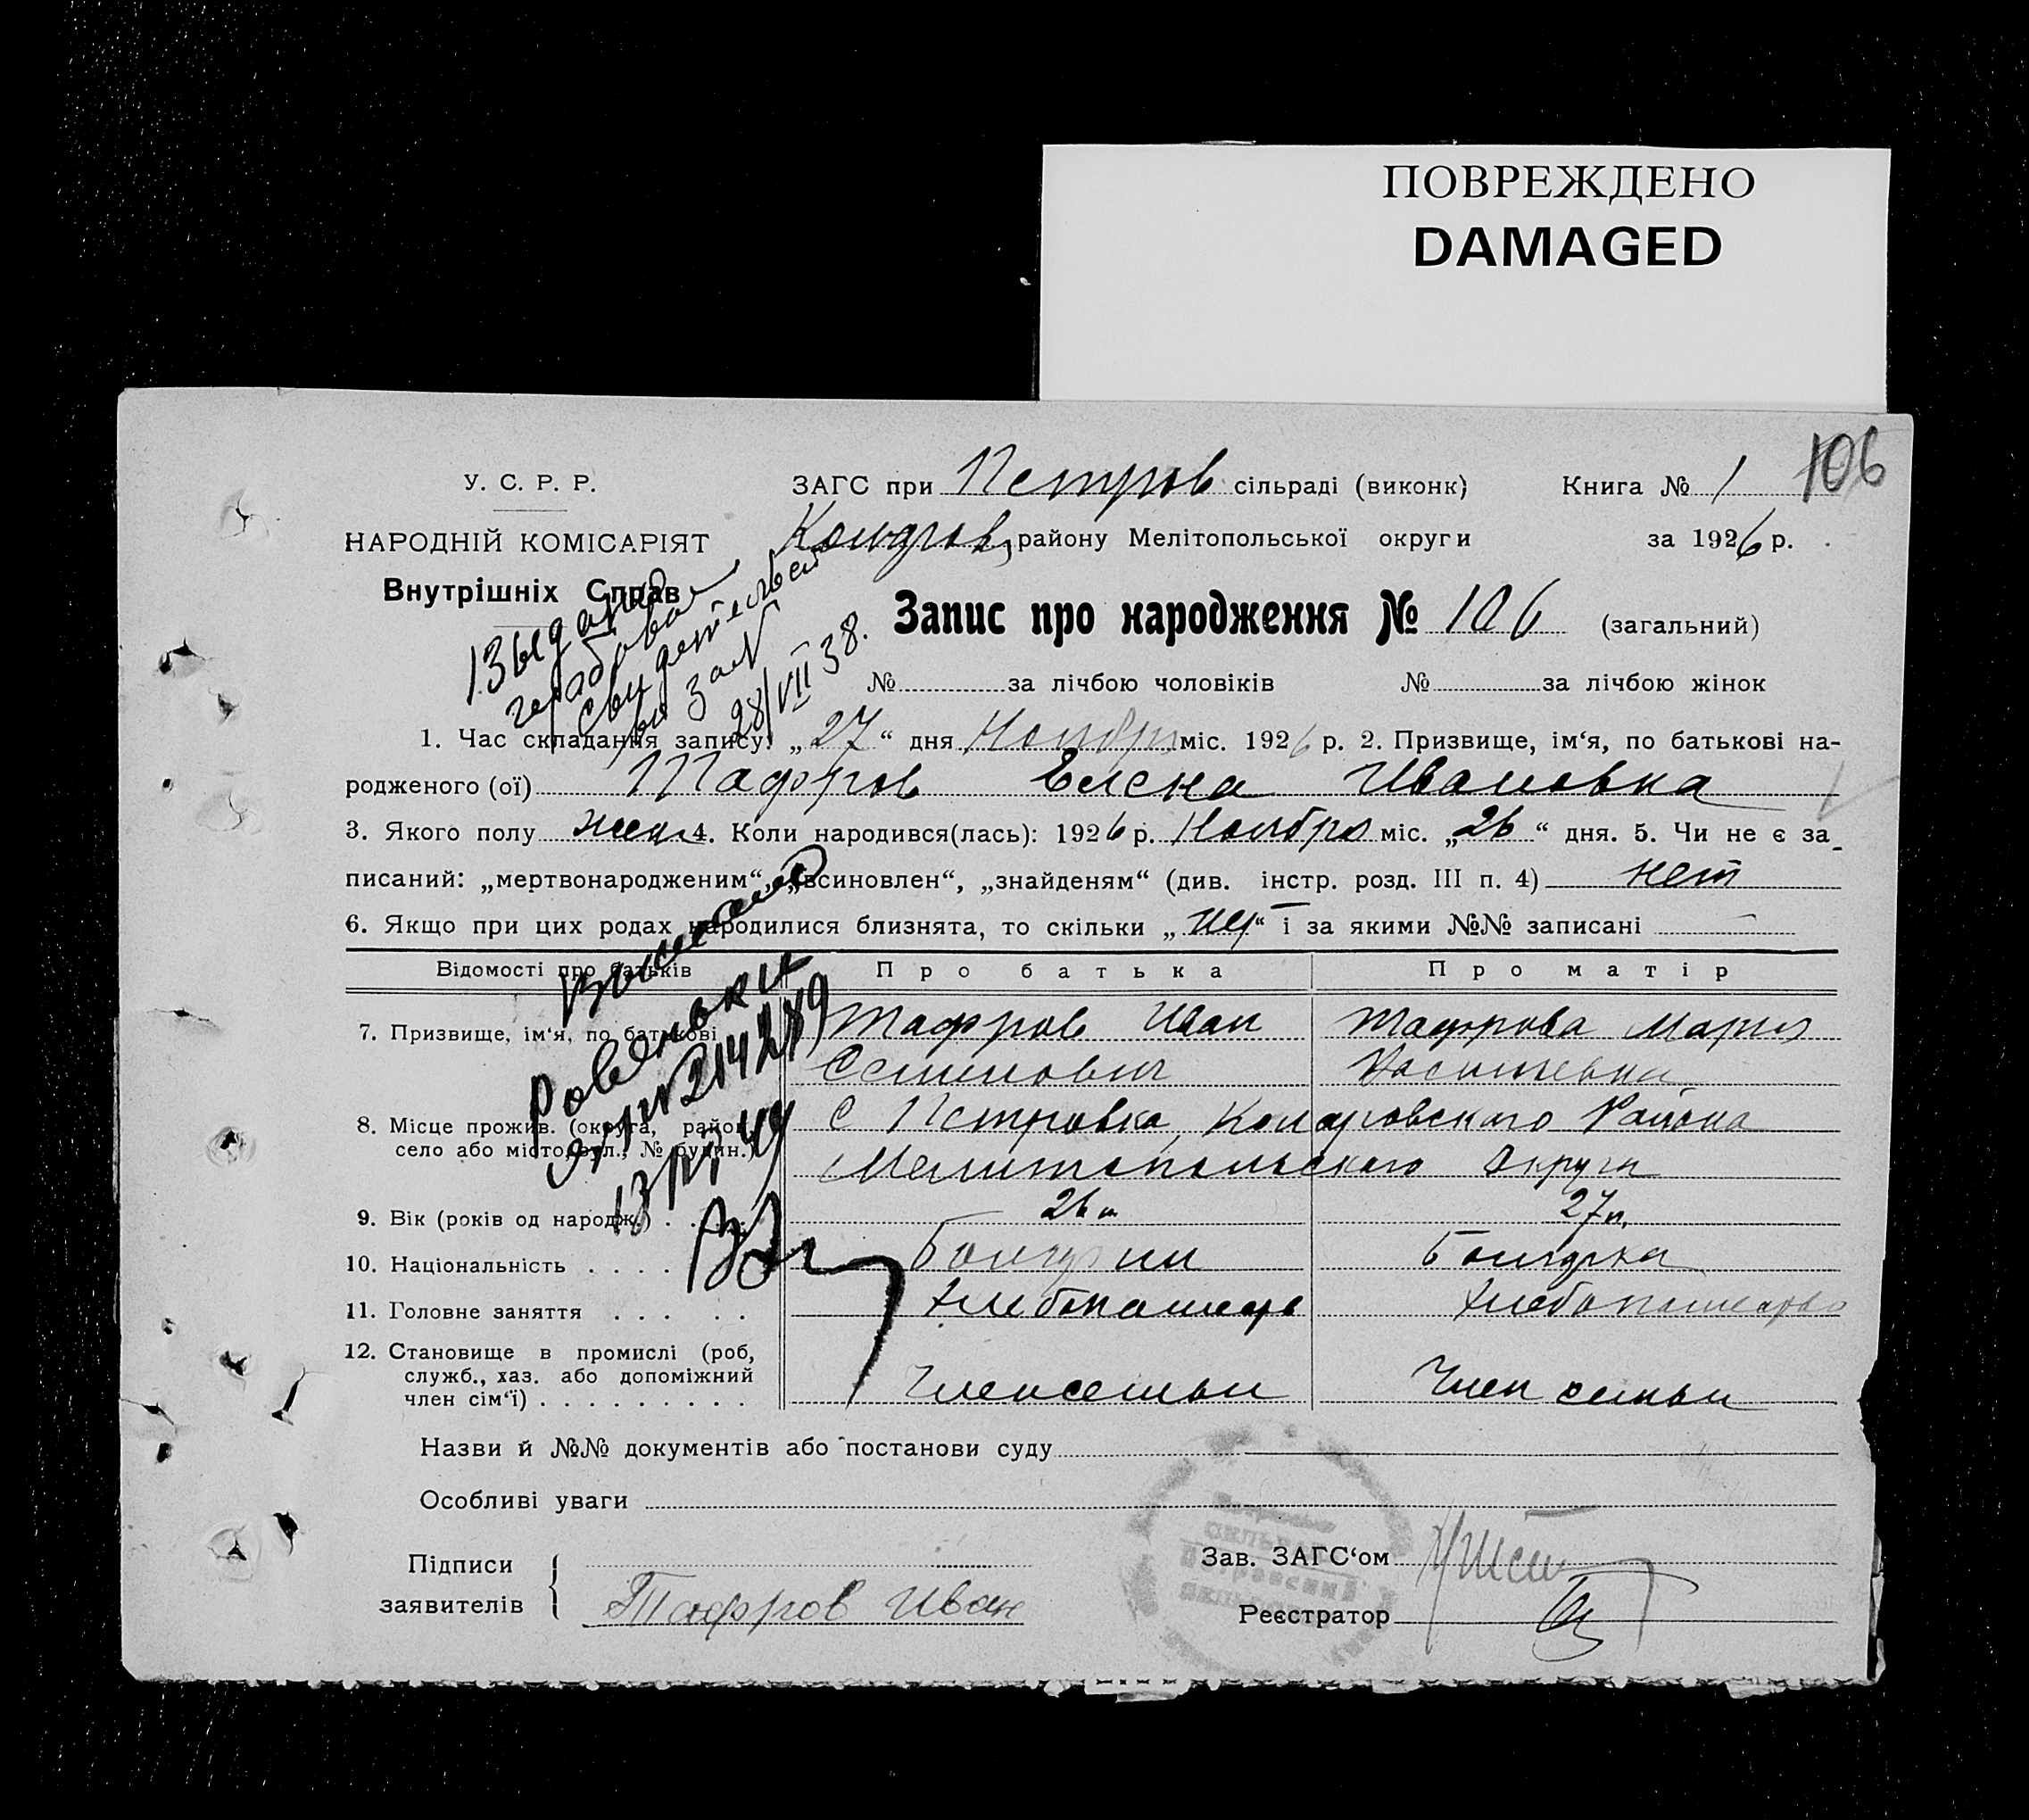 ПОВРЕЖДЕНО
DAMAGED
106
У. С. Р. Р.
ЗАГС при Петров сільраді (виконк)
Книга № 1
НАРОДНІЙ КОМІСАРІЯТ
району Мелітопольської округи
за 1926 р.
Внутрішніх Справ
Выдано
свидетельст
за №
28/VII 38.
Запис про народження № 106 (загальний)
№ за лічбою чоловіків
№ за лічбою жінок
1. Час складання запису: „27“ дня Ноября міс. 1926 р. 2. Призвище, ім‘я, по батькові на-
родженого (ої) Тафров Елена Ивановна
3. Якого полу жен 4. Коли народився(лась): 1926 р. Ноября міс. „26“ дня. 5. Чи не є за_
писаний: „мертвонародженим“, „всиновлен“, „знайденям“ (див. інстр. розд. III п. 4) нет
6. Якщо при цих родах народилися близнята, то скільки „ “ і за якими №№ записані
Відомості про батьків
Про батька
Про матір
7. Призвище, ім‘я, по батькові
Тафров Иван
Тафрова Мария
Семенович
Васильевна
8. Місце прожив. (округа, район,
село або місто, вул., № будин.)
С Петровка, Района
Мелитопольского Округа
9. Вік (років од народж.) . . . .
26
27
10. Національність . . . .
11. Головне заняття . . . . .
12. Становище в промислі (роб,
служб., хаз. або допоміжний
член сім‘ї) . . . . . . . . .
Член семьи
Член семьи
Назви й №№ документів або постанови суду
Особливі уваги
Підписи
заявителів
Тафров Иван
Зав. ЗАГС‘ом
Реєстратор